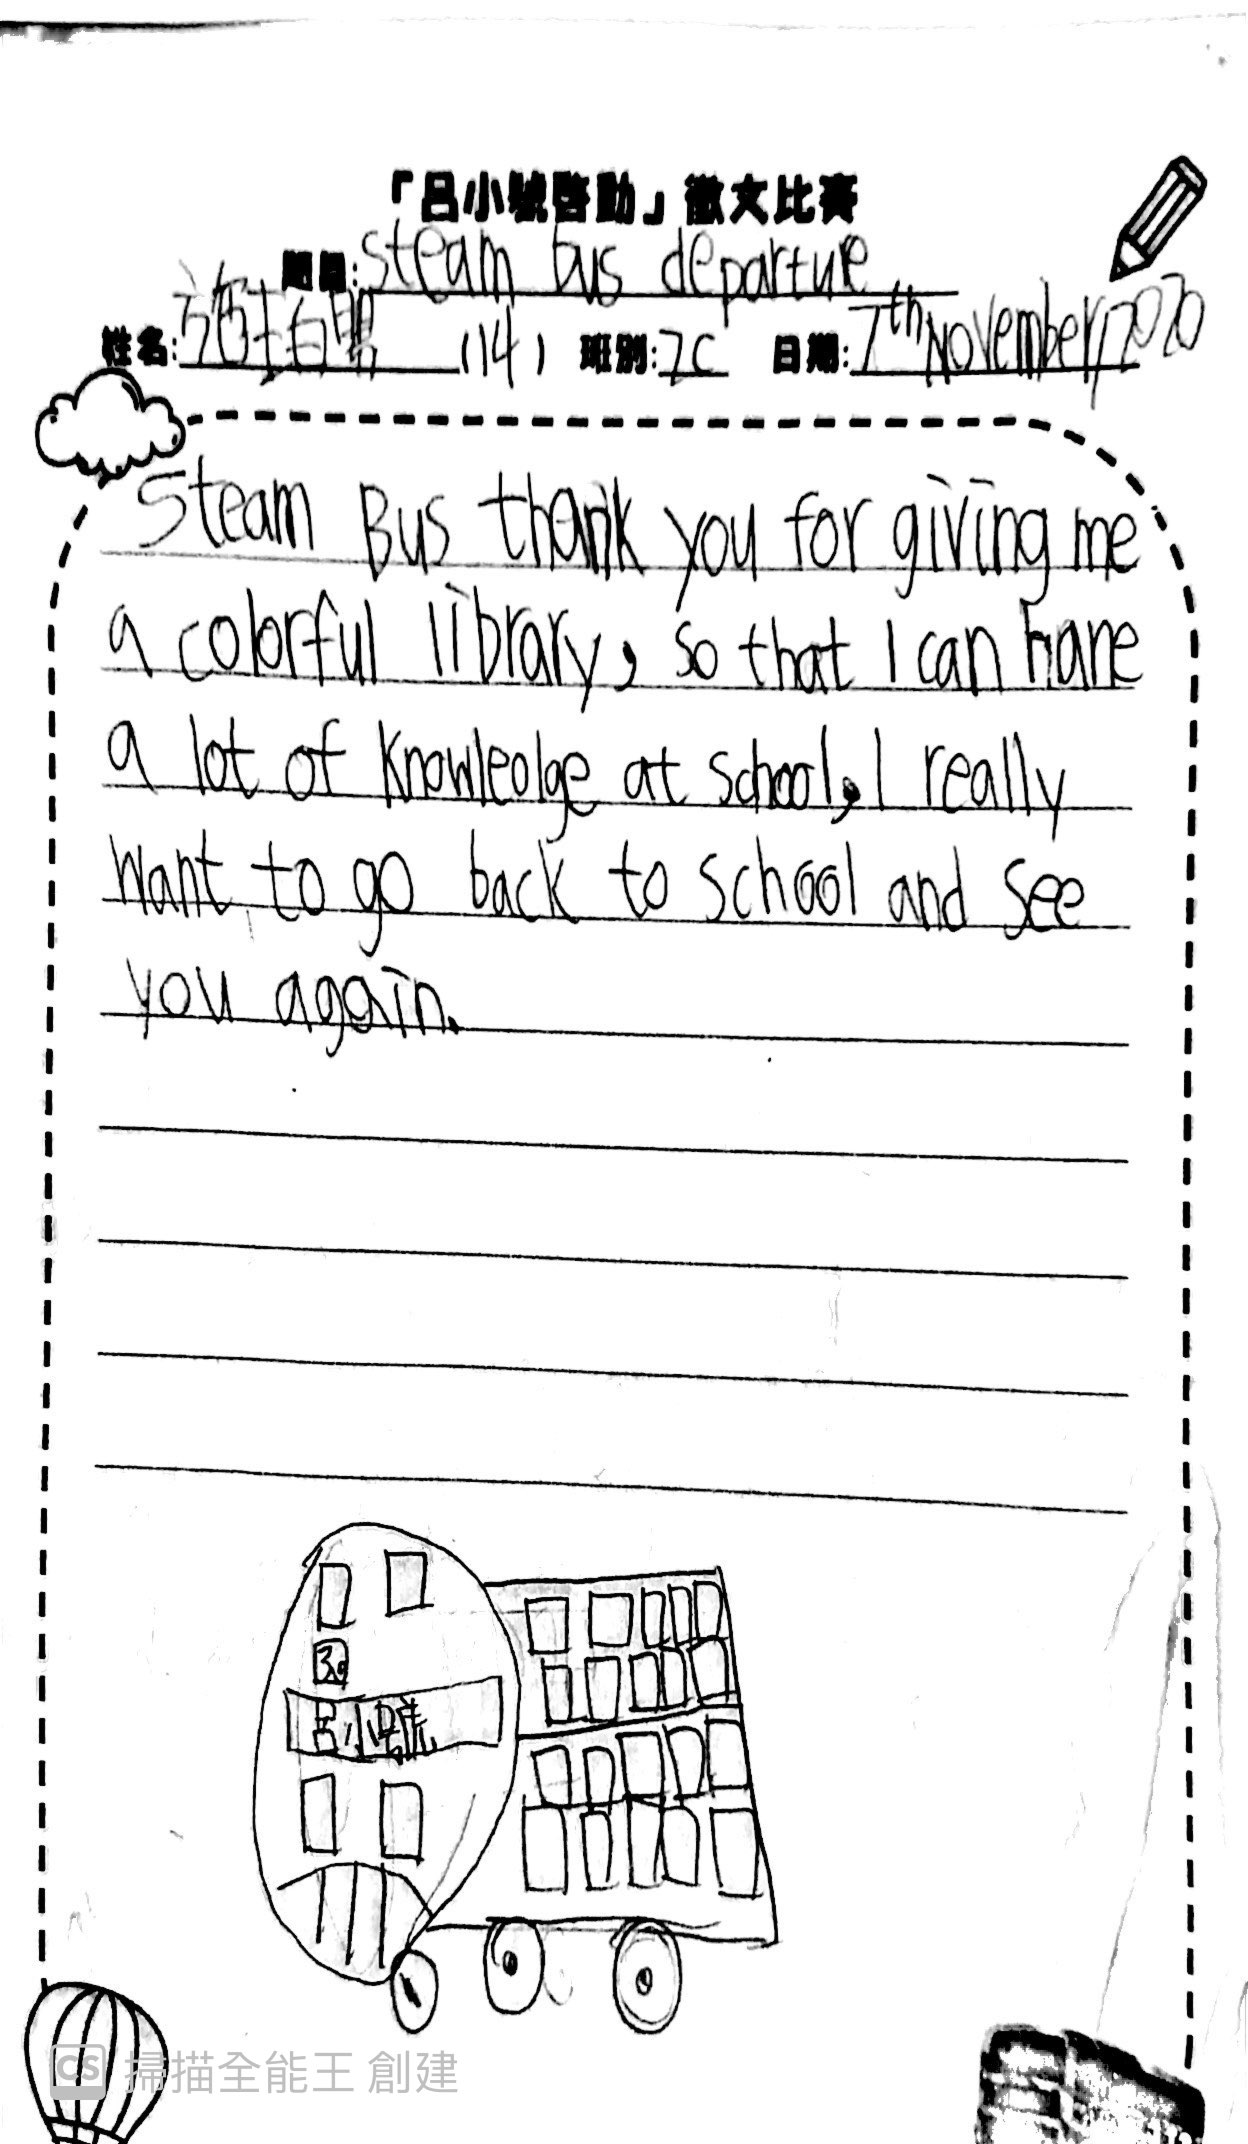 「呂小號啓動」徵文比賽
題目:steam bus departure
姓名: (14) 班別:2C 日期:7th November,2020
Steam Bus thank you for giving me
a colorful library, so that I can have
a lot of knowledge at school, I really
want to go back to school and see
you again.
呂小號
CS 掃描全能王 創建